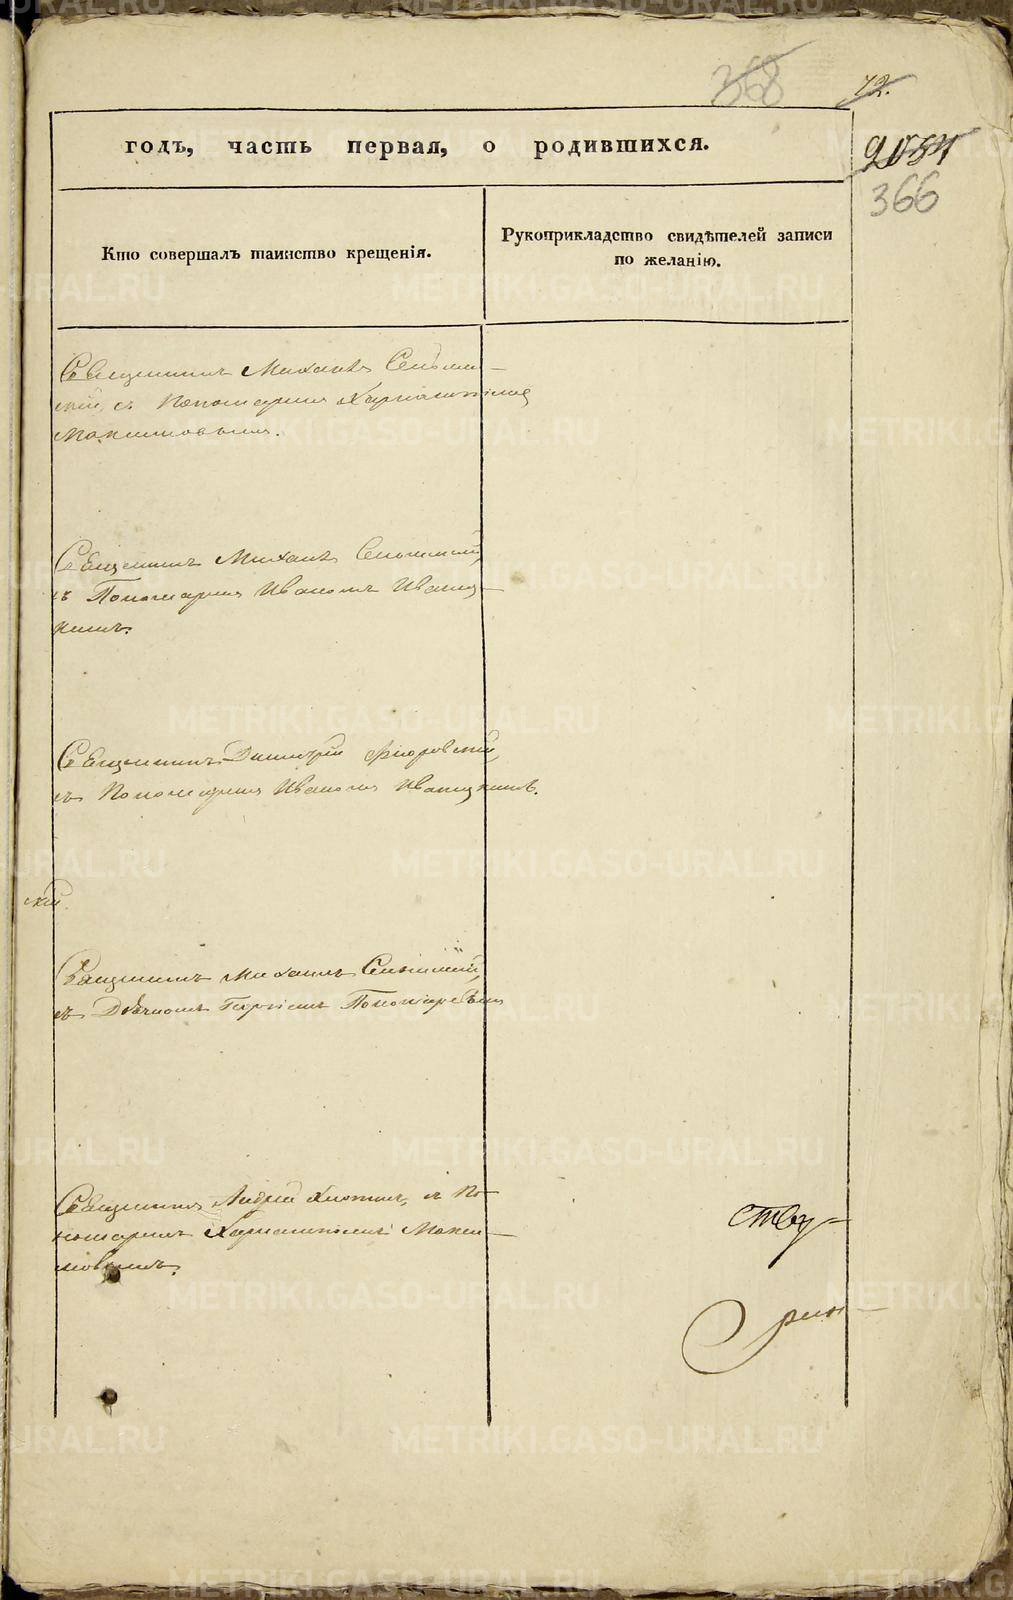 368
72.
годъ, часть первая, о родившихся.
2054
366
Кто совершалъ таинство крещенія.
Рукоприкладство свидѣтелей записи
по желанію.
Священникъ Михаилъ
съ Пономаремъ Харлампіемъ
Максимовымъ.
Священникъ Михаилъ
съ Пономаремъ Иваномъ Иваниц-
кимъ.
Священникъ Димитрій Флоровскій,
съ Пономаремъ Иваномъ Иваницкимъ.
скій.
Священникъ Михаилъ
съ Дьячкомъ Георгіемъ Пономаревымъ
Священникъ Андрей съ По-
номаремъ Харлампіемъ Макси-
мовымъ.
ству-
METRIKI.GASO-URAL.RU